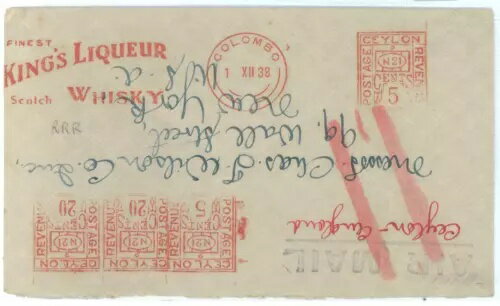 FINEST
KING'S LIQUEUR
Scotch WHISKY
COLOMBO
1 XII 38
POSTAGE CEYLON REVENUE
N21
CENTS
5
RRR
Messrs. Chas. T. Wilson Co. Inc,
99, Wall Street,
New York
U.S.A
Ceylon - England
AIR MAIL
POSTAGE CEYLON REVENUE
N21
5
POSTAGE CEYLON REVENUE
N21
20
POSTAGE CEYLON REVENUE
N21
20